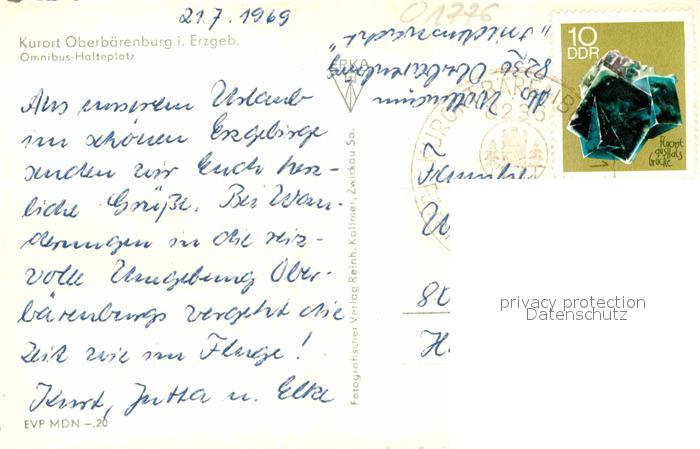 21.7.1969
Kurort Oberbärenburg i. Erzgeb.
Omnibus-Halteplatz
Aus unserem Urlaub
im schönen Erzgebirge
senden wir Euch herz-
liche Grüße. Bei Wan-
derungen in die reiz-
volle Umgebung Ober-
bärenburgs vergeht die
Zeit wie im Fluge!
Kurt, Jutta u. Elke
EVP MDN –.20
Fotografischer Verlag Reinh. Kallmer, Zwickau Sa.
01776
8236 Oberbärenburg
"Friedenswacht"
10
DDR
Fluorit
Familie
80
H.
privacy protection
Datenschutz